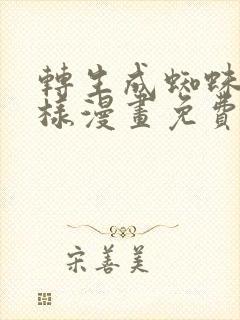 轉生成蜘蛛
樣漫畫免費
宋善美